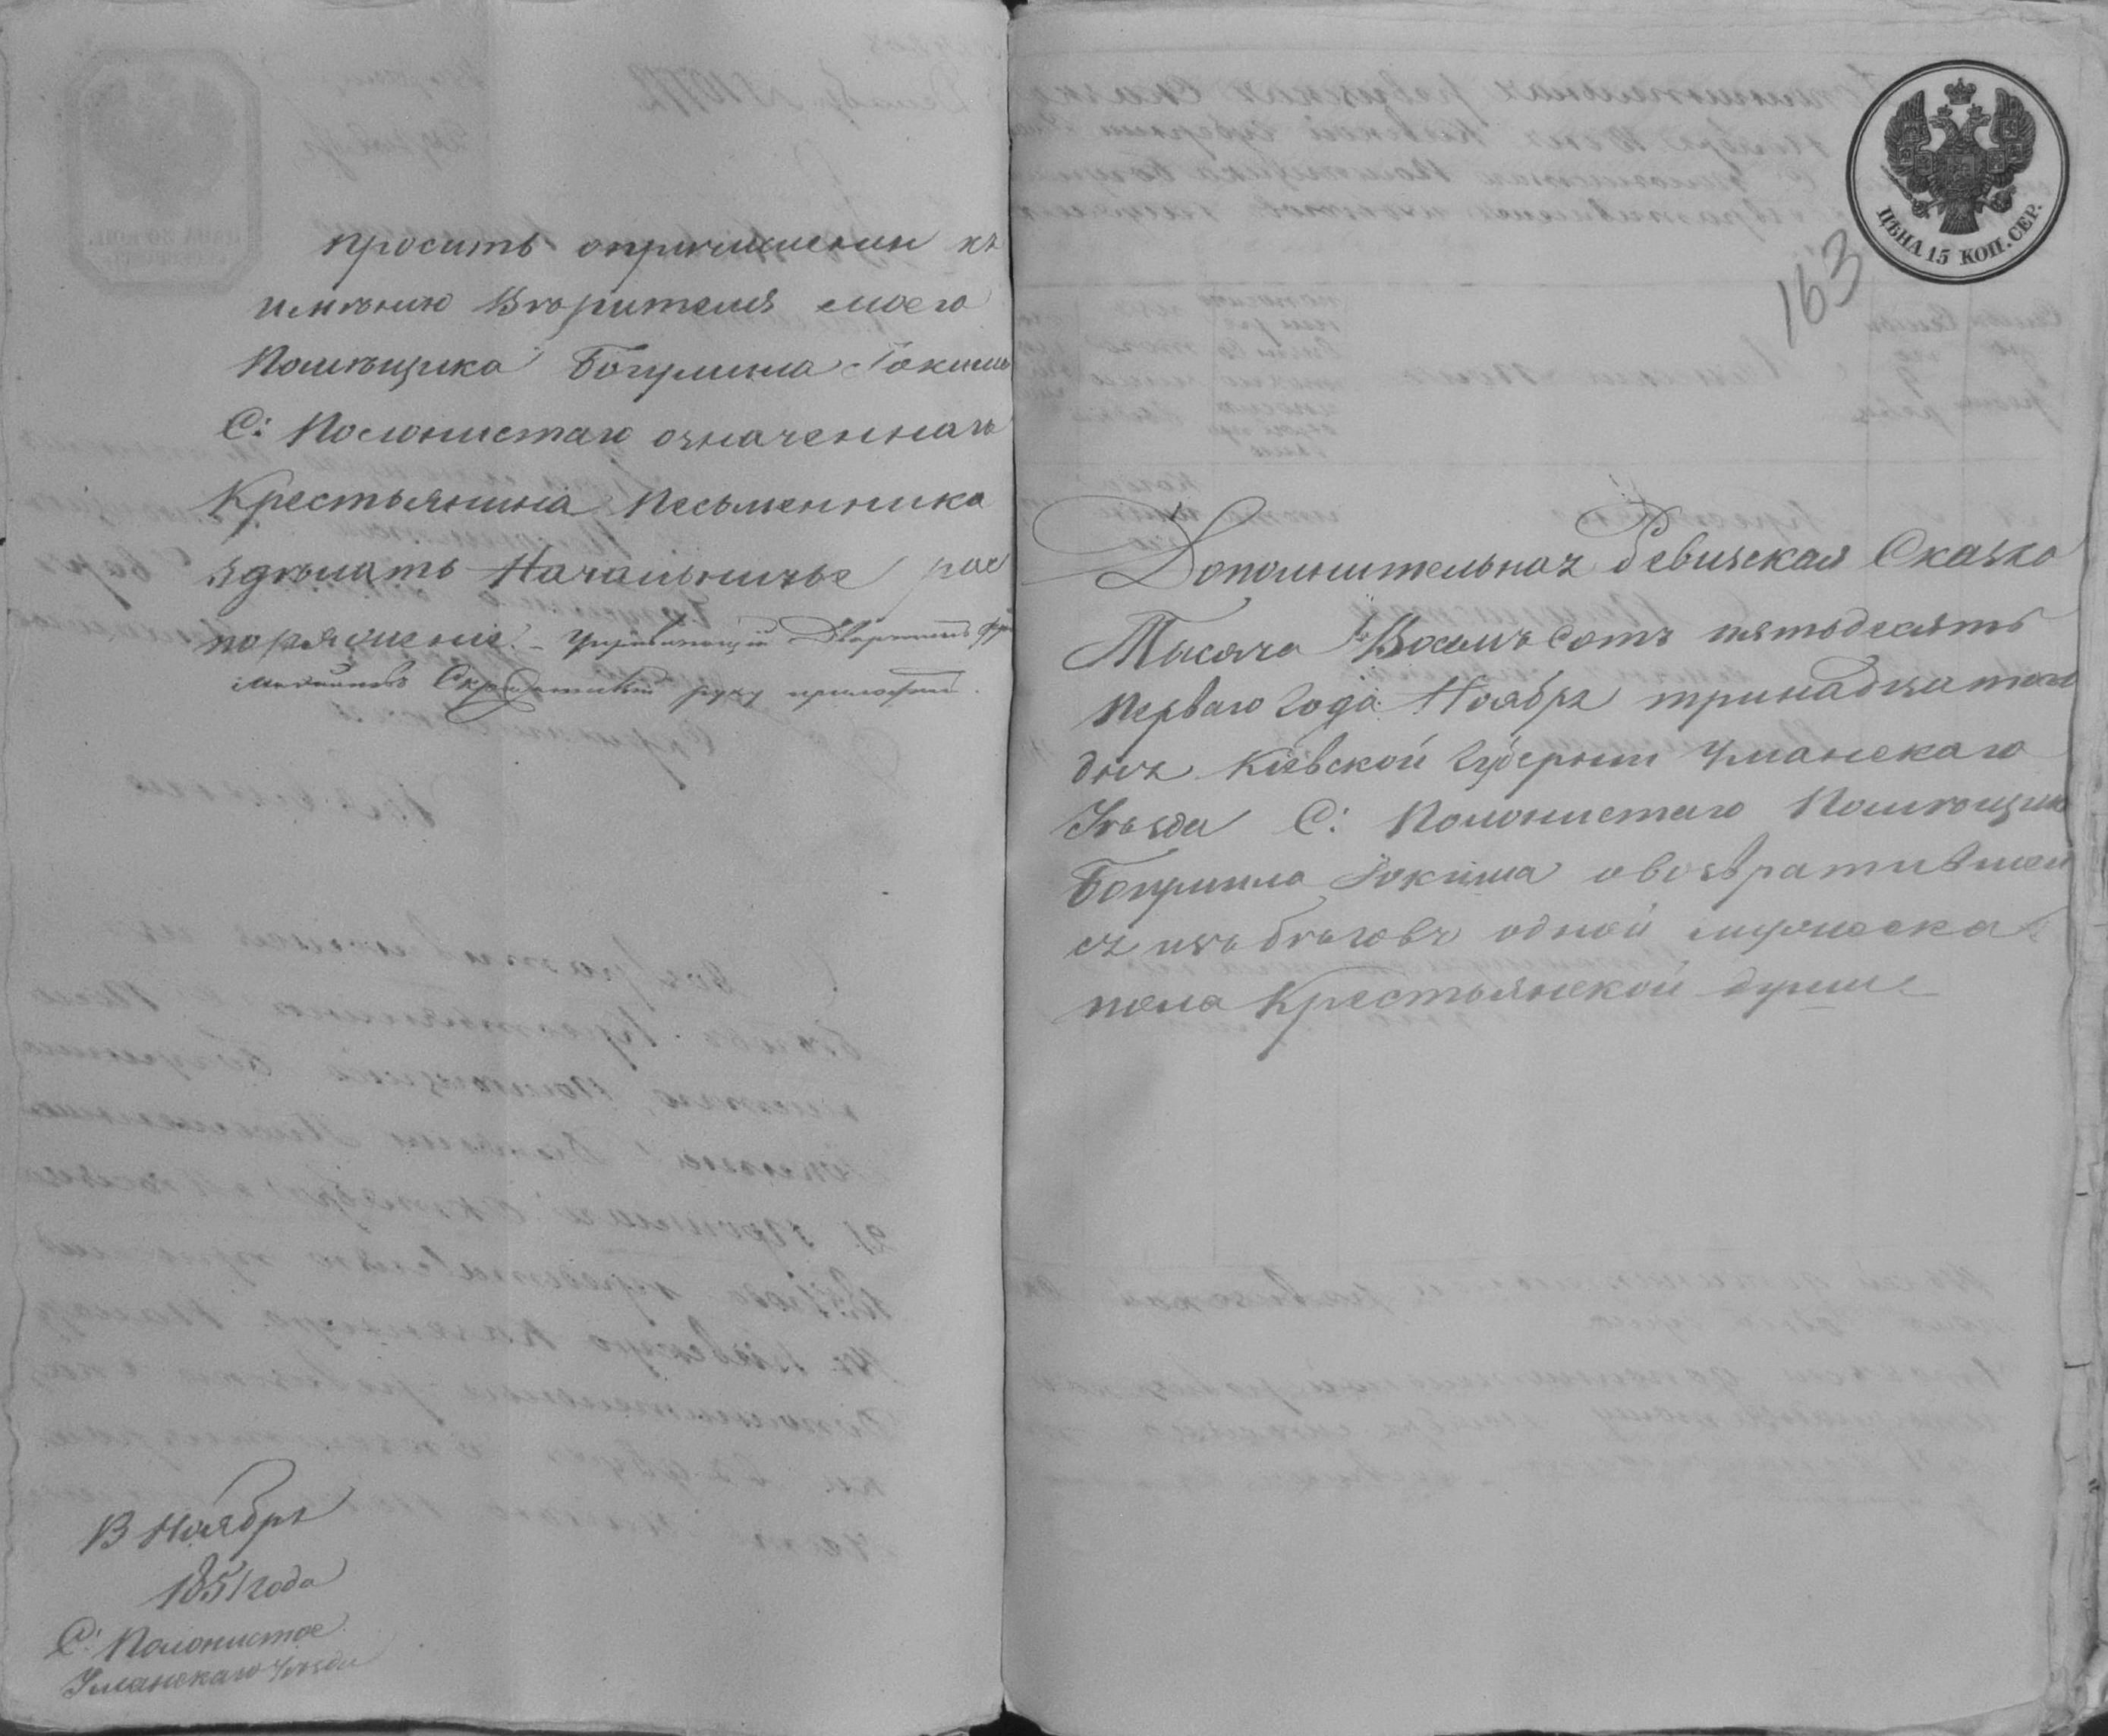 просить опричисленіи къ
имѣнію Вѣрителя моего
Помѣщика Богумила Іокиша
С: Полонистаго означеннаго
Крестьянина Песьменника
здѣлать Начальничье рас
поряженіе. – Управляющій Дворянинъ
руку приложилъ.
13 Ноября
1851 года
С: Полонистое
Уманскаго Уѣзда
ЦѢНА 15 КОП. СЕР.
163
Дополнительная Ревизская Сказка
Тысяча Восемъ сотъ пятьдесятъ
перваго Года Ноября тринадцатаго
дня Кіевской Губерніи Уманскаго
Уѣзда С: Полонистаго Помѣщика
Богумила Іокиша овозвратившей
ся изъ бѣговъ одной мужеска
пола Крестьянской душе